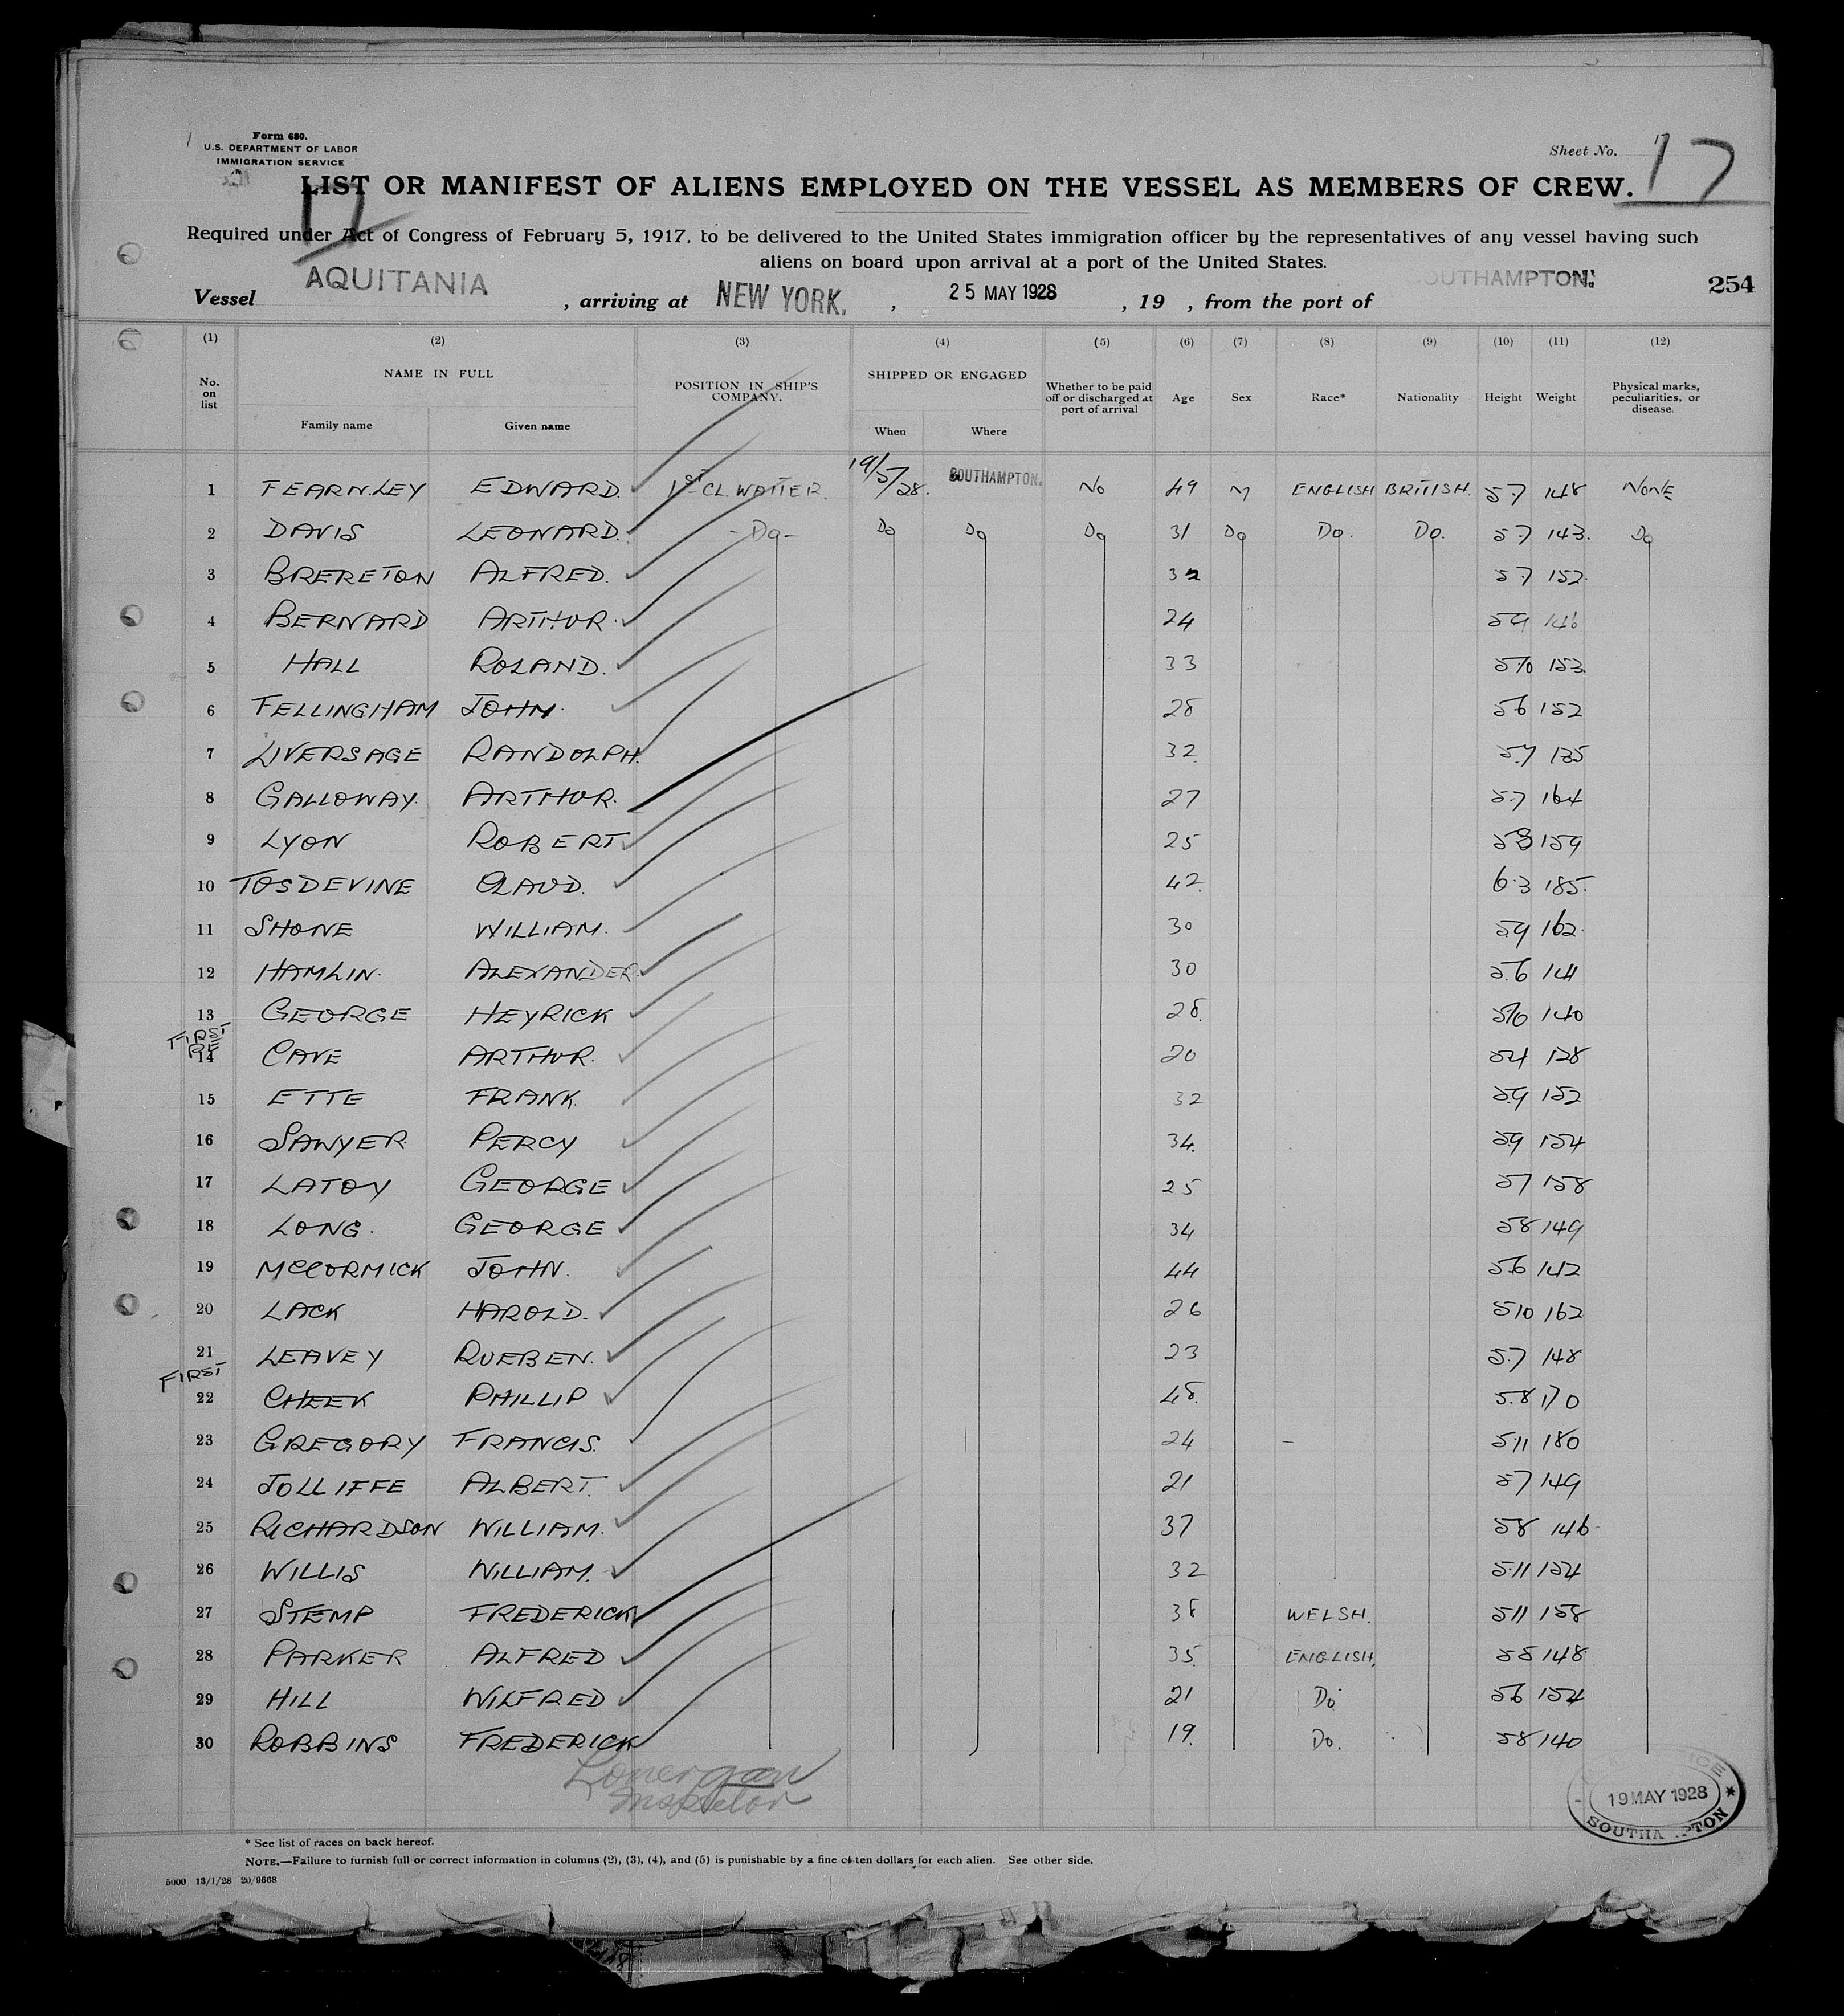 Form 680.
U.S. DEPARTMENT OF LABOR
IMMIGRATION SERVICE
Sheet No. 17
LIST OR MANIFEST OF ALIENS EMPLOYED ON THE VESSEL AS MEMBERS OF CREW.
Required under Act of Congress of February 5, 1917, to be delivered to the United States immigration officer by the representatives of any vessel having such
aliens on board upon arrival at a port of the United States.
Vessel AQUITANIA, arriving at NEW YORK, 25 MAY 1928, 19 , from the port of SOUTHAMPTON. 254
(1) (2) (3) (4) (5) (6) (7) (8) (9) (10) (11) (12)
No. on list NAME IN FULL POSITION IN SHIP'S COMPANY. SHIPPED OR ENGAGED Whether to be paid off or discharged at port of arrival Age Sex Race* Nationality Height Weight Physical marks, peculiarities, or disease.
Family name Given name When Where
1 FEARNLEY EDWARD. 1ST CL. WAITER. 19/5/28. SOUTHAMPTON. No 49 M ENGLISH BRITISH. 5.7 148 NONE
2 DAVIS LEONARD. -Do- Do Do Do 31 Do Do. Do. 5.7 143. Do
3 BRERETON ALFRED. 32 5 7 152.
4 BERNARD ARTHUR. 24 5 9 146
5 HALL ROLAND. 33 5 10 153
6 FELLINGHAM JOHN. 28 5 6 152
7 LIVERSAGE RANDOLPH. 32 5.7 135
8 GALLOWAY. ARTHUR. 27 5.7 164
9 LYON ROBERT 25 5 8 159
10 TOSDEVINE CLAUD. 42. 6.3 185.
11 SHONE WILLIAM. 30 5 9 162.
12 HAMLIN. ALEXANDER. 30 5.6 141
13 GEORGE HEYRICK 28. 5 10 140
FIRST
RF
14 CAVE ARTHUR. 20 5 4 128
15 ETTE FRANK. 32 5.9 152
16 SAWYER PERCY 34. 5.9 154
17 LATOY GEORGE 25 5 7 158
18 LONG. GEORGE 34 5 8 149
19 McCORMICK JOHN. 44 5.6 142
20 LACK HAROLD. 26 5 10 162
21 LEAVEY RUEBEN. 23 5.7 148
FIRST
22 CHEEK PHILLIP 48. 5.8 170
23 GREGORY FRANCIS. 24 5.11 180
24 JOLLIFFE ALBERT. 21 5 7 149
25 RICHARDSON WILLIAM. 37 5 8 146
26 WILLIS WILLIAM. 32 5.11 154
27 STEMP FREDERICK 38 WELSH. 5 11 158
28 PARKER ALFRED 35. ENGLISH. 5 8 148
29 HILL WILFRED 21 Do 5 6 154
30 ROBBINS FREDERICK 19. Do. 5 8 140
Lonergan
Inspector
19 MAY 1928
SOUTHAMPTON
* See list of races on back hereof.
NOTE.—Failure to furnish full or correct information in columns (2), (3), (4), and (5) is punishable by a fine of ten dollars for each alien. See other side.
5000 13/1/28 20/9668